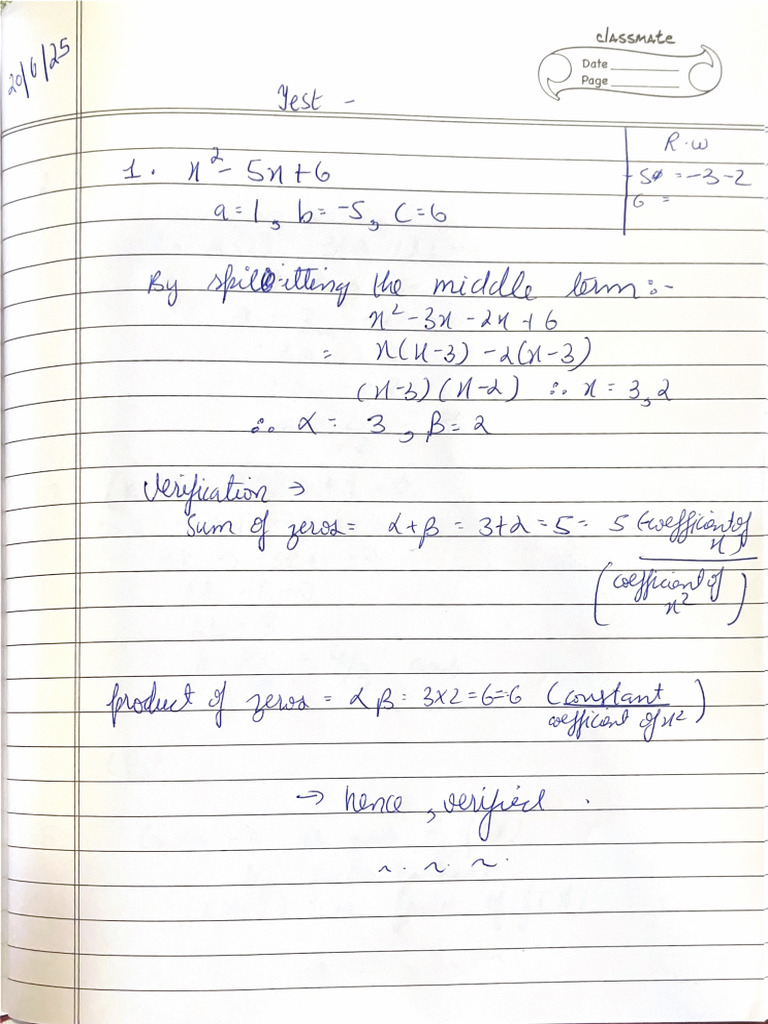 20/6/25
classmate
Date
Page
Test -
R.w
1. x² - 5x + 6
-5 = -3 - 2
a = 1, b = -5, c = 6
6 =
By the middle term :-
x² - 3x - 2x + 6
= x(x-3) - 2(x-3)
(x-3)(x-2) ∴ x = 3, 2
∴ α = 3, β = 2
Verification →
Sum of zeros = α+β = 3+2 = 5 = 5 (-coefficient of x)
(coefficient of x²)
product of zeros = αβ = 3×2 = 6 = 6 (constant
coefficient of x²)
→ hence, verified.